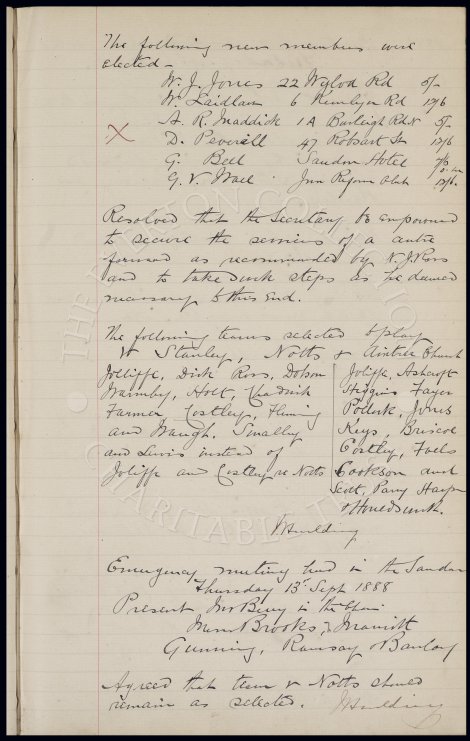 The following new members were
elected -
W. J. Jones 22 Wylva Rd 5/-
W. Laidlaw 6 Kemlyn Rd 12/6
A. R. Maddick 1A Burleigh Rd N 5/-
D. Peverell 47 Robsart St 12/6
G. Bell Sandon Hotel 7/6
G. V. Wace Jun Reform Club 12/6
Resolved that the Secretary be empowered
to secure the services of a centre
forward as recommended by N. J. Ross
and to take such steps as he deemed
necessary to this end.
The following teams selected to play
v Stanley, Notts & Aintree Church
Jolliffe, Dick Ross, Dobson
Warmby, Holt, Chadwick
Farmer Costley, Fleming
and Waugh. Smalley
and Lewis instead of
Joliffe and Costley at Notts
Joliffe, Ashcroft
Higgins Fayer
Pollock, Jones
Keys, Briscoe
Costley, Falls
Cookson and
Scott, Parry Harper
J Houlding
Emergency meeting held in the Sandon
Thursday 13th Sept 1888
Present, Mr Berry in the Chair
Messrs Brooks, Marriott
Gunning, Ramsay & Barclay
Agreed that team v Notts should
remain as selected. J Houlding
THE EVERTON COLLECTION
CHARITABLE TRUST